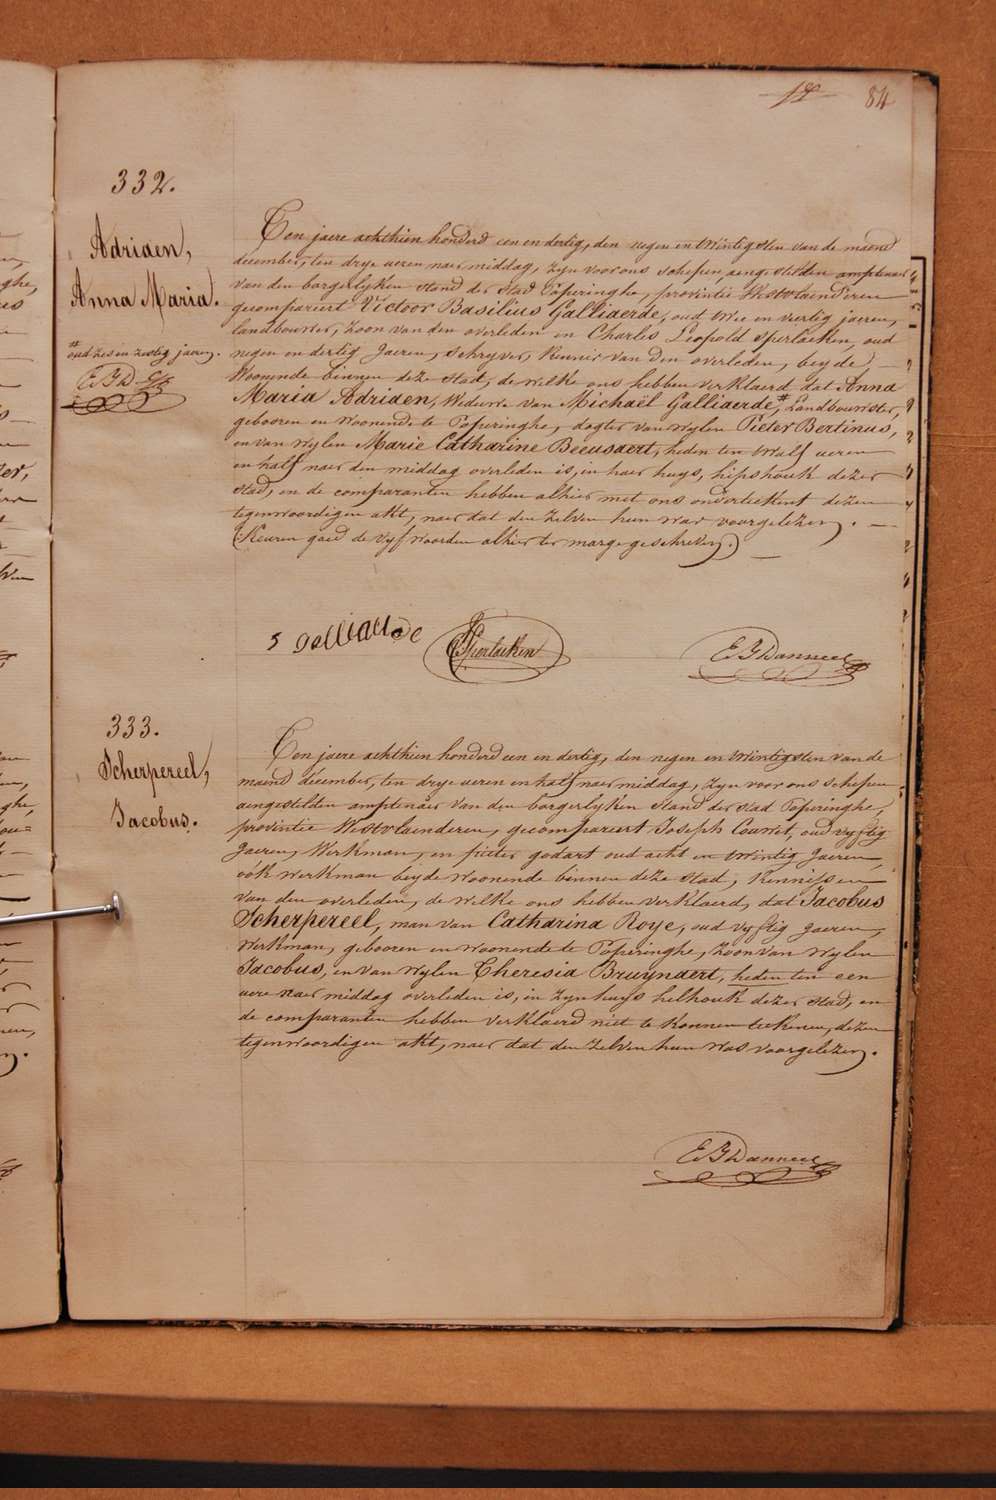 84
332.
Adriaen,
Anna Maria.
# oud zes en zestig jaeren.
Ten jaere achthien honderd een en dertig, den negen en twintigsten van de maend
december, ten drye ueren naer middag, zyn voor ons schepen aengestelden amptenaer
van den borgerlyken stand der stad Poperinghe, provintie Westvlaenderen
gecompareert Victoor Basilius Galliaerde, oud twee en veertig jaeren,
landbouwer, zoon van den overleden en Charles Leopold Sperlaeken, oud
negen en dertig jaeren, schryver, kennis van den overleden, beyde
woonende binnen deze stad, de welke ons hebben verklaerd dat Anna
Maria Adriaen, weduwe van Michaël Galliaerde #, Landbouwster,
gebooren en woonende te Poperinghe, dogter van wylen Pieter Bertinus,
en van wylen Marie Catharine Beeusaert, heden ten twalf ueren
en half naer den middag overleden is, in haer huys, hipshouk dezer
stad, en de comparanten hebben alhier met ons onderteekent dezen
tegenwoordigen akt, naer dat den zelven hun was voorgelezen.
(Keuren goed de vyf woorden alhier ter marge geschreven.)
Galliaerde Sperlaeken E J Danneel
333.
Scherpereel,
Jacobus.
Ten jaere achthien honderd een en dertig, den negen en twintigsten van de
maend december, ten drye ueren en half naer middag, zyn voor ons schepen
aengestelden amptenaer van den borgerlyken stand der stad Poperinghe,
provintie Westvlaenderen, gecompareert Joseph Couvret, oud vyftig
jaeren, werkman, en pieter godart oud acht en twintig jaeren,
ook werkman beyde woonende binnen deze stad, kennissen
van den overleden, de welke ons hebben verklaerd, dat Jacobus
Scherpereel, man van Catharina Roye, oud vyftig jaeren,
werkman, gebooren en woonende te Poperinghe, zoon van wylen
Jacobus, en van wylen Theresia Bruynaert, heden ten een
uere naer middag overleden is, in zyn huys helhouk dezer stad, en
de comparanten hebben verklaerd niet te konnen teekenen, dezen
tegenwoordigen akt, naer dat den zelven hun was voorgelezen.
E J Danneel